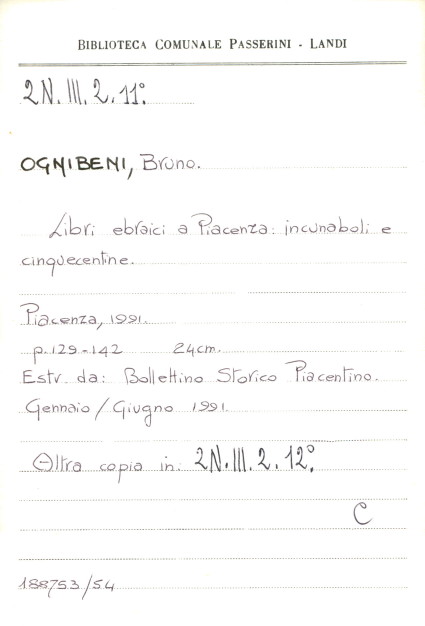 BIBLIOTECA COMUNALE PASSERINI - LANDI
2N.III.2.11°.
OGNIBENI, Bruno.
Libri ebraici a Piacenza: incunaboli e
cinquecentine.
Piacenza, 1991.
p. 129-142 24cm.
Estr. da: Bollettino Storico Piacentino.
Gennaio/Giugno 1991.
Altra copia in: 2N.III.2.12°.
C
188753/54